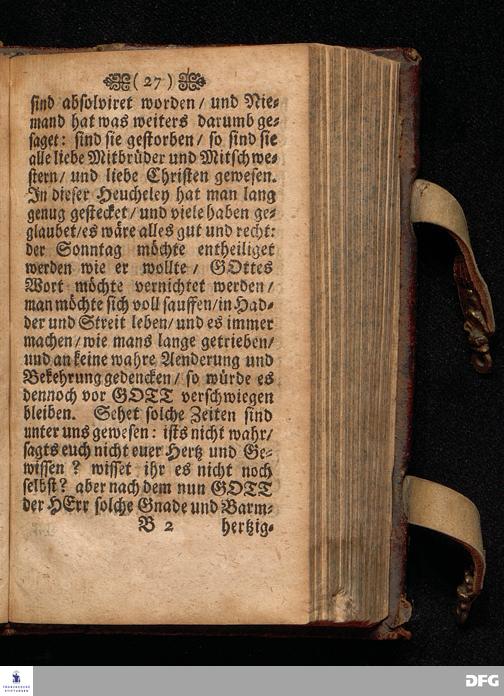 (27)
sind absolviret worden / und Nie-
mand hat was weiters darumb ge-
saget: sind sie gestorben / so sind sie
alle liebe Mitbrüder und Mitschwe-
stern / und liebe Christen gewesen.
In dieser Heucheley hat man lang
genug gestecket / und viele haben ge-
glaubet / es wäre alles gut und recht:
der Sonntag möchte entheiliget
werden wie er wollte / GOttes
Wort möchte vernichtet werden /
man möchte sich voll sauffen / in Had-
der und Streit leben / und es immer
machen / wie mans lange getrieben /
und an keine wahre Aenderung und
Bekehrung gedencken / so würde es
dennoch vor GOTT verschwiegen
bleiben. Sehet solche Zeiten sind
unter uns gewesen: ists nicht wahr /
sagts euch nicht euer Hertz und Ge-
wissen? wisset ihr es nicht noch
selbst? aber nach dem nun GOTT
der HErr solche Gnade und Barm-
B 2 hertzig-
FRANCKESCHE
STIFTUNGEN
DFG